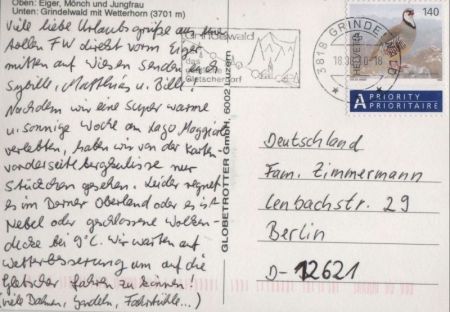 Oben: Eiger, Mönch und Jungfrau
Unten: Grindelwald mit Wetterhorn (3701 m)
Viele liebe Urlaubsgrüße aus einer
tollen FW direkt vorm Eiger
mitten auf Wiesen senden euch
Sybille, Matthias u. Bille.
Nachdem wir eine super warme
u. sonnige Woche am Lago Maggiore
verlebten, haben wir von der Karten-
vorderseite bergkulisse nur
Stückchen gesehen. Leider regnet
es im Berner Oberland oder es ist
Nebel oder geschlossene Wolken-
decke bei 9°C. Wir warten auf
Wetterbesserung um auf die
Gletscher fahren zu können
(viele Bahnen, Gondeln, Fahrstühle...)
GLOBETROTTER GmbH, 6002 Luzern
Grindelwald
das
Gletscherdorf
3818 GRINDEL
18
140
HELVETIA
A PRIORITY
PRIORITAIRE
Deutschland
Fam. Zimmermann
Lenbachstr. 29
Berlin
D-12621